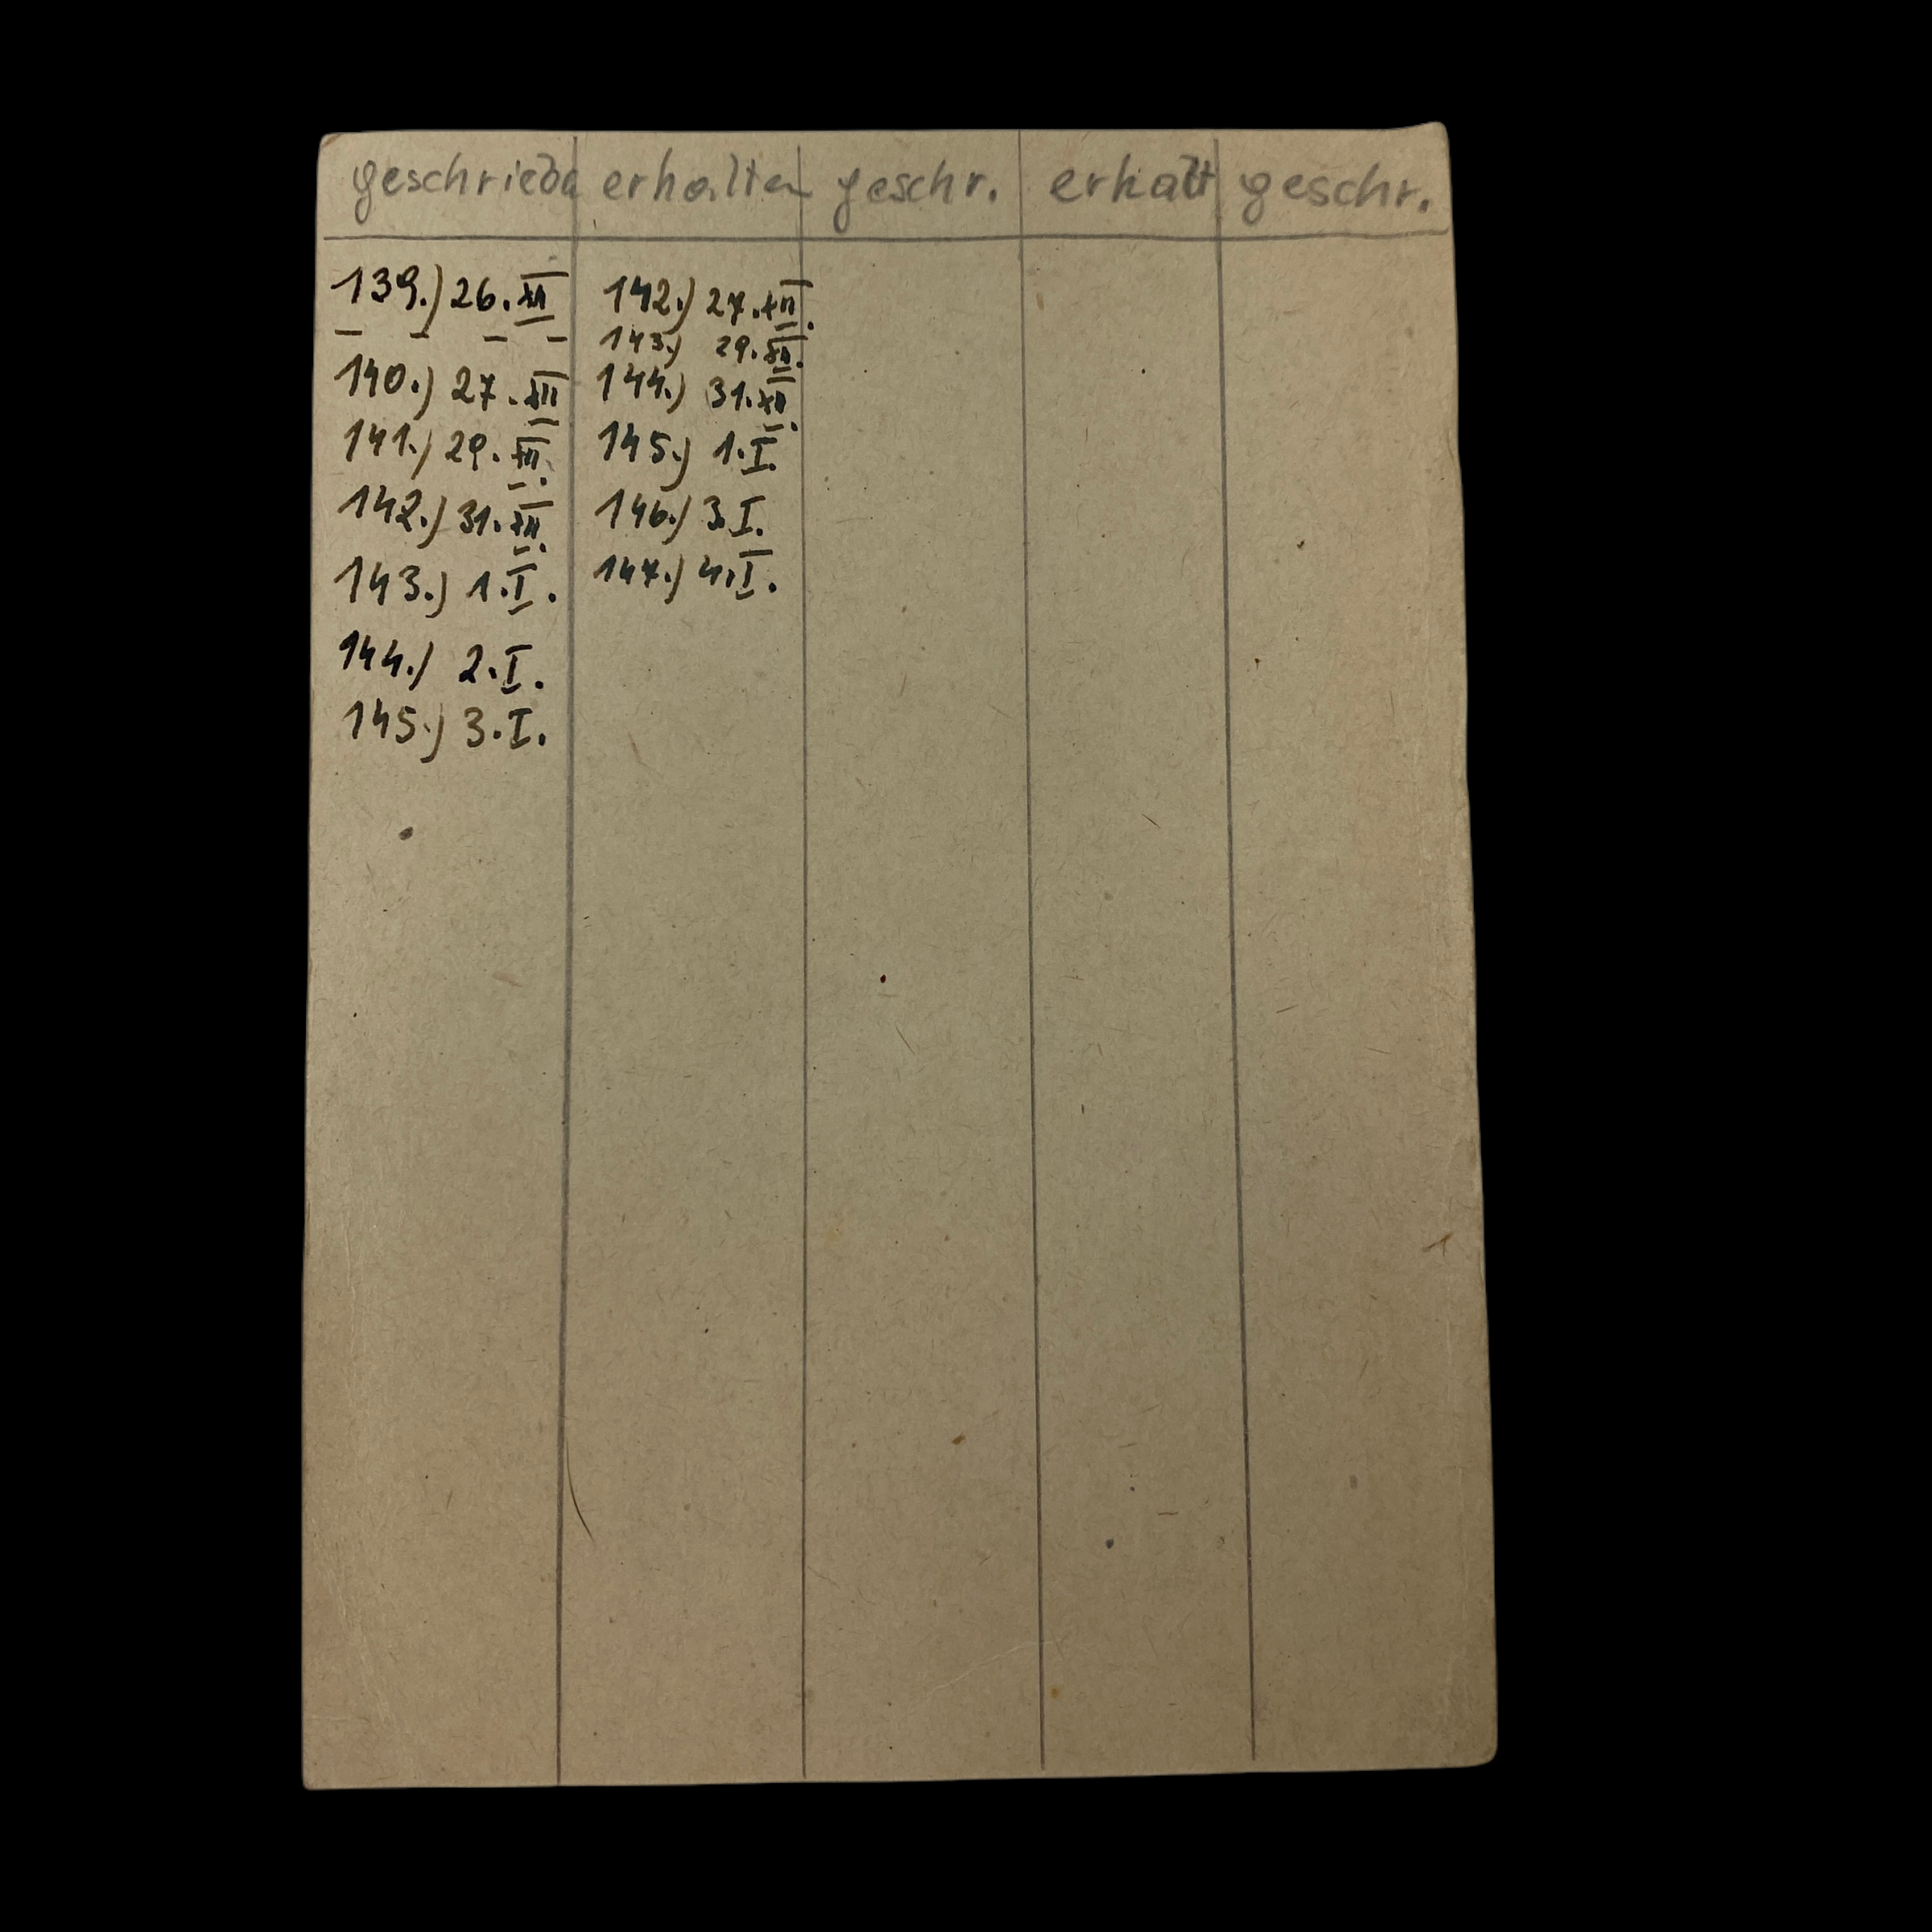 geschrieben erhalten geschr. erhalt geschr.
139.) 26.XII 142.) 27.XII.
143.) 29.XII.
140.) 27.XII 144.) 31.XII.
141.) 29.XII. 145.) 1.I.
142.) 31.XII. 146.) 3.I.
143.) 1.I. 147.) 4.I.
144.) 2.I.
145.) 3.I.